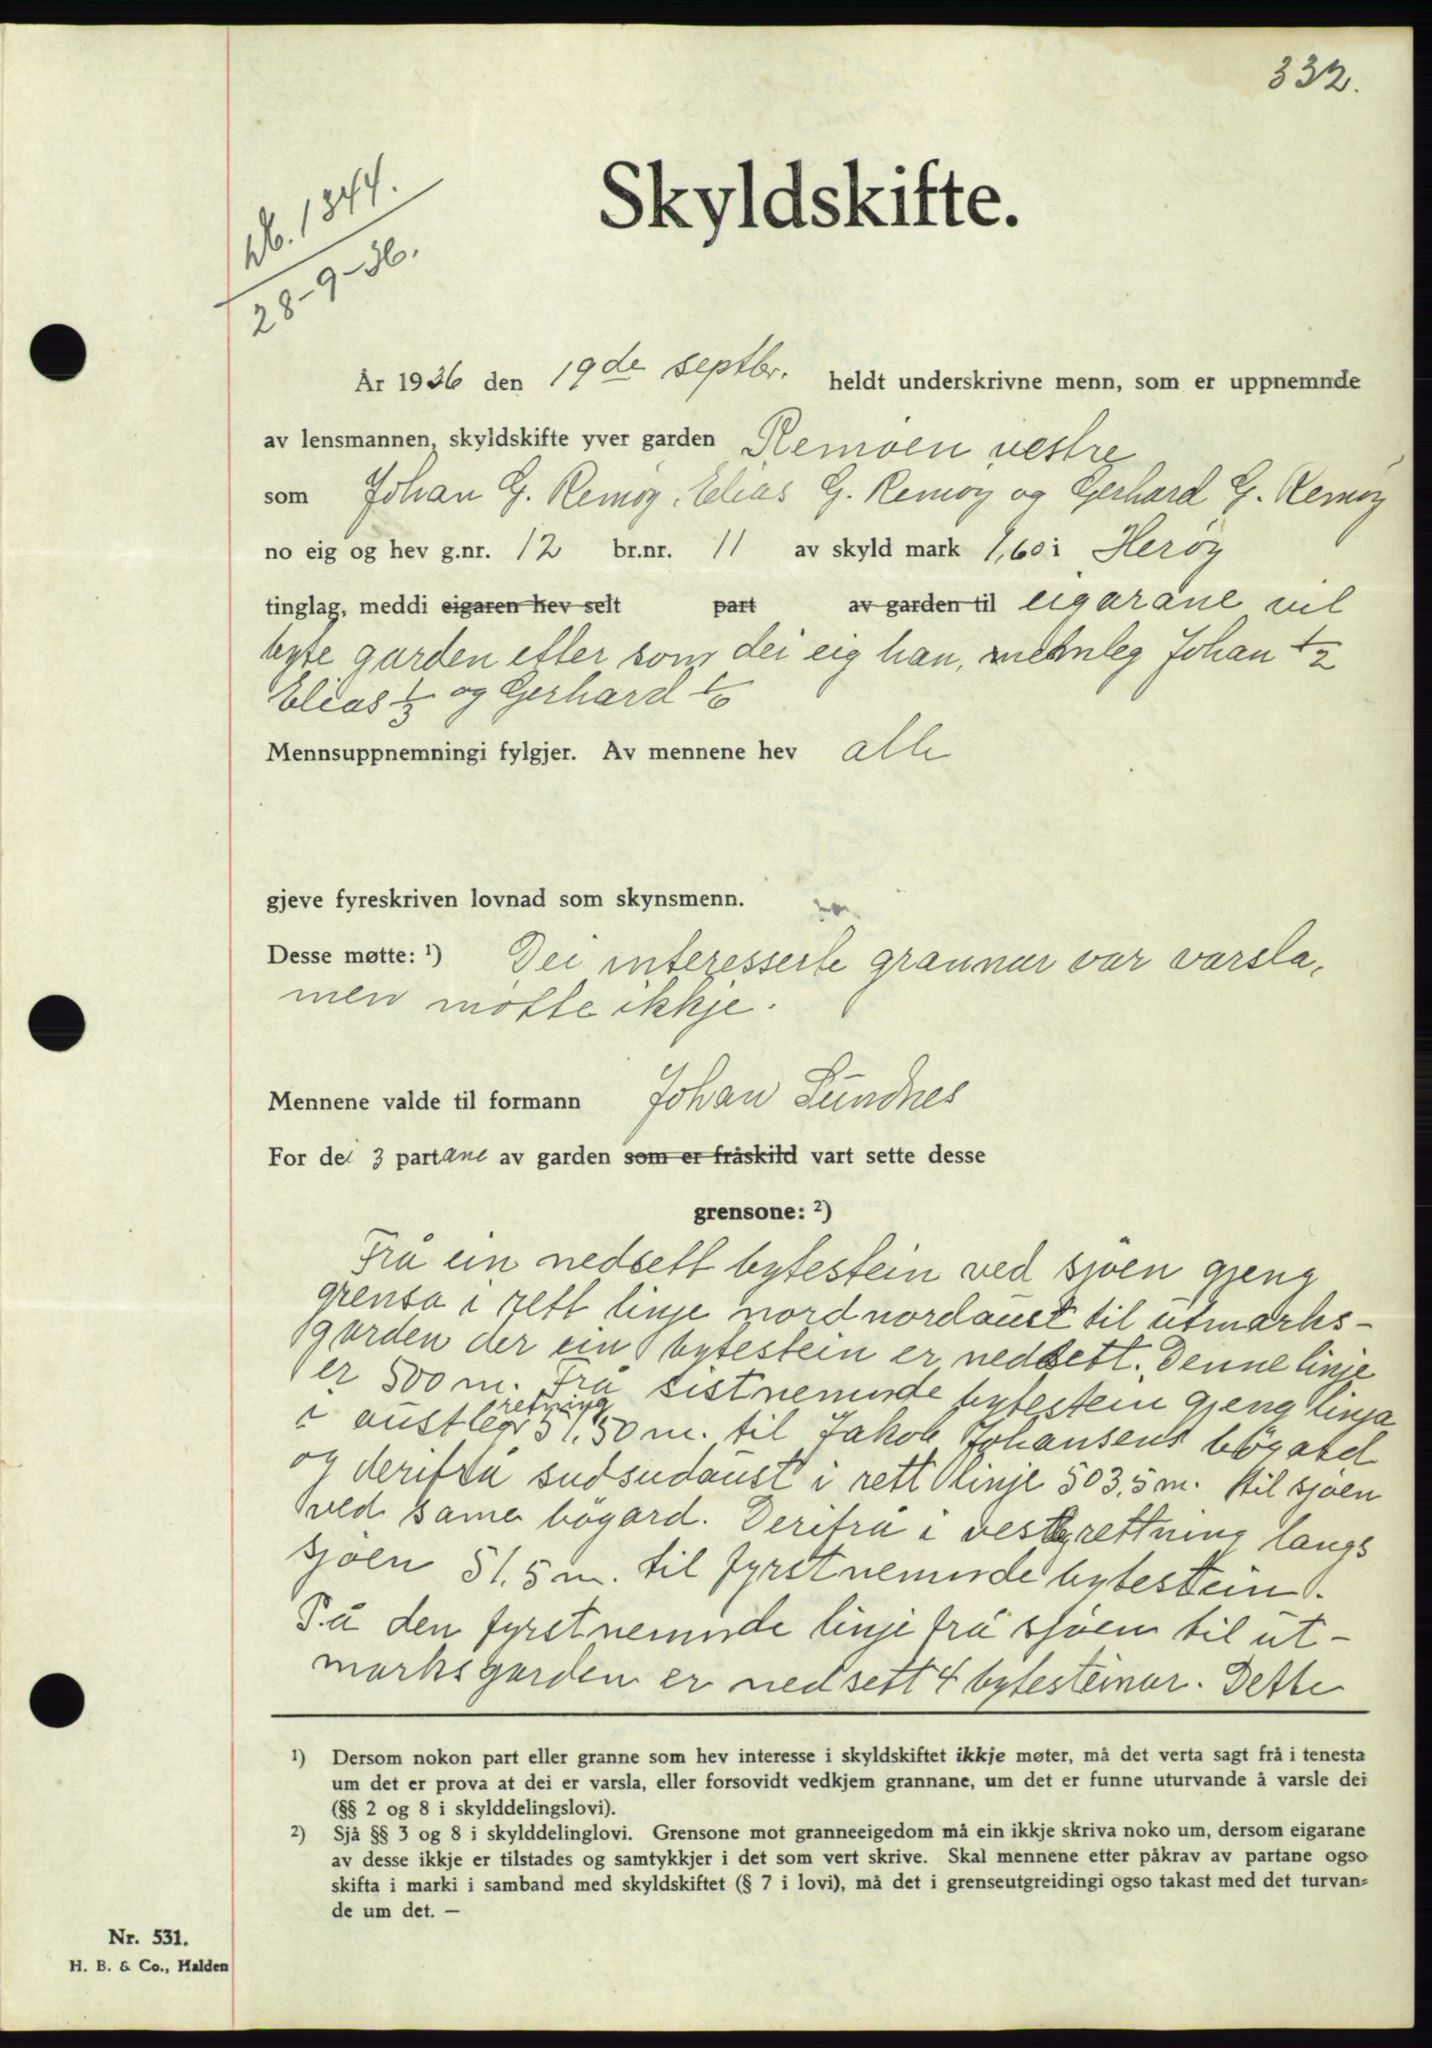 332.
Nb. 1344.
28-9-36.
Skyldskifte.
År 1936 den 19de septbr. heldt underskrivne menn, som er uppnemnde
av lensmannen, skyldskifte yver garden Remöen vestre
som Johan G. Remöy, Elias G. Remöy og Gerhard G. Remöy
no eig og hev g.nr. 12 br.nr. 11 av skyld mark 1,60 i Heröy
tinglag, meddi eigaren hev selt part av garden til eigarane vil
byte garden etter som dei eig han, nemleg Johan 1/2
Elias 1/3 og Gerhard 1/6
Mennsuppnemningi fylgjer. Av mennene hev alle
gjeve fyreskriven lovnad som skynsmenn.
Desse møtte: ¹) Dei interesserte grannar var varsla,
men møtte ikkje.
Mennene valde til formann Johan Sundnes
For dei 3 partane av garden som er fråskild vart sette desse
grensone: ²)
Frå ein nedsett bytestein ved sjöen gjeng
grensa i rett linje nordnordaust til utmarks-
garden der ein bytestein er nedsett. Denne linje
er 500 m. Frå sistnemnde bytestein gjeng linja
i austleg retning 51,50 m. til Jakob Johansens bögard
og derifrå sudsudaust i rett linje 503,5 m. til sjöen
ved same bögard. Derifrå i vestrettning langs
sjöen 51,5 m. til fyrstnemnde bytestein.
På den fyrstnemnde linje frå sjöen til ut-
marksgarden er nedsett 4 bytesteinar. Dette
¹) Dersom nokon part eller granne som hev interesse i skyldskiftet ikkje møter, må det verta sagt frå i tenesta
um det er prova at dei er varsla, eller forsovidt vedkjem grannane, um det er funne uturvande å varsle dei
(§§ 2 og 8 i skylddelingslovi).
²) Sjå §§ 3 og 8 i skylddelinglovi. Grensone mot granneeigedom må ein ikkje skriva noko um, dersom eigarane
av desse ikkje er tilstades og samtykkjer i det som vert skrive. Skal mennene etter påkrav av partane ogso
skifta i marki i samband med skyldskiftet (§ 7 i lovi), må det i grenseutgreidingi ogso takast med det turvan-
de um det. —
Nr. 531.
H. B. & Co., Halden